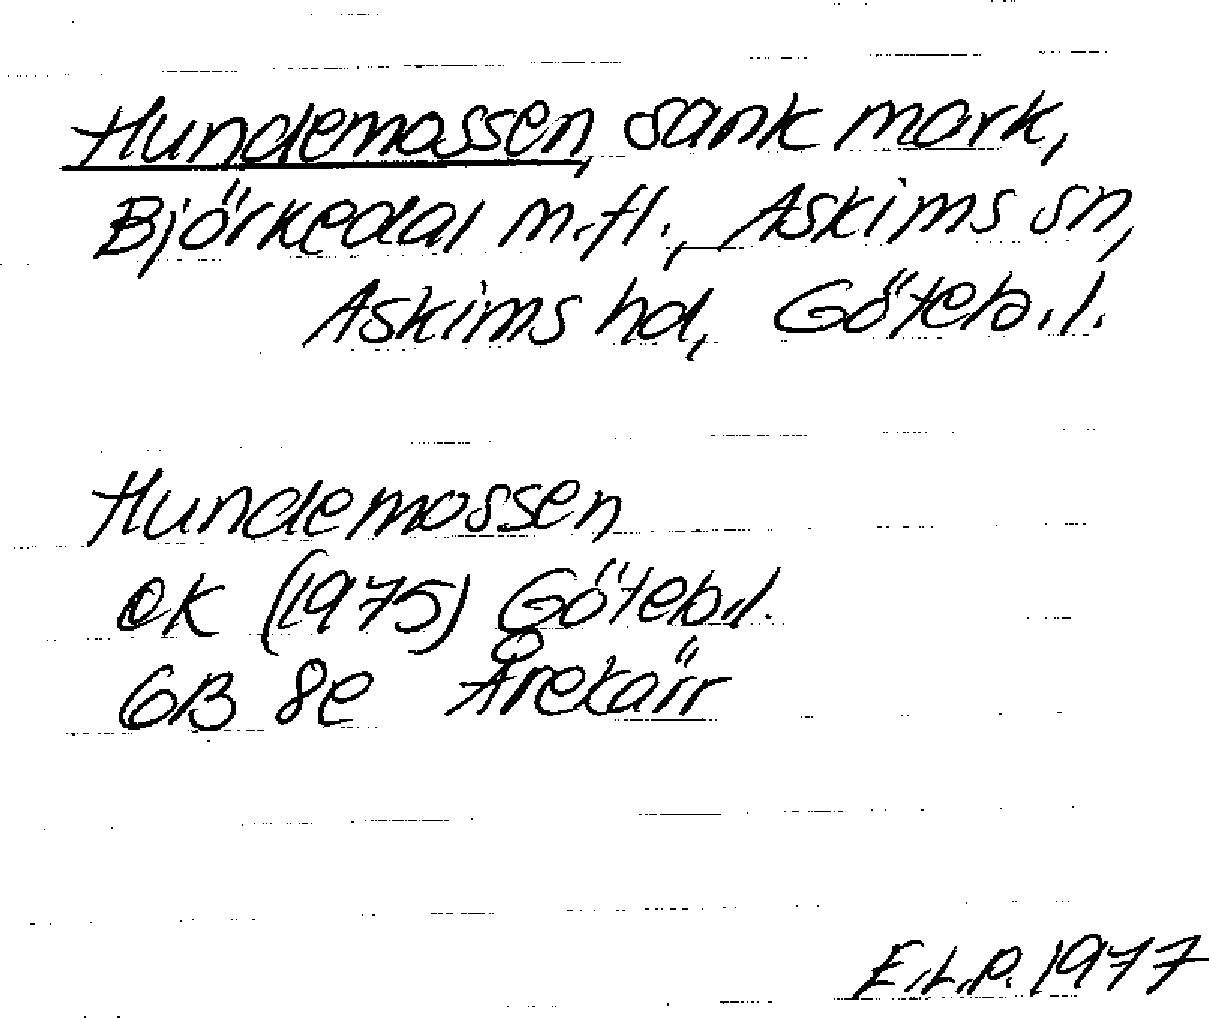 Hundemossen, sank mark,
Björkedal m.fl., Askims sn,
Askims hd, Göteb.l.
Hundemossen
EK (1975) Göteb.l.
6B 8e Årekärr
E.L.P. 1977